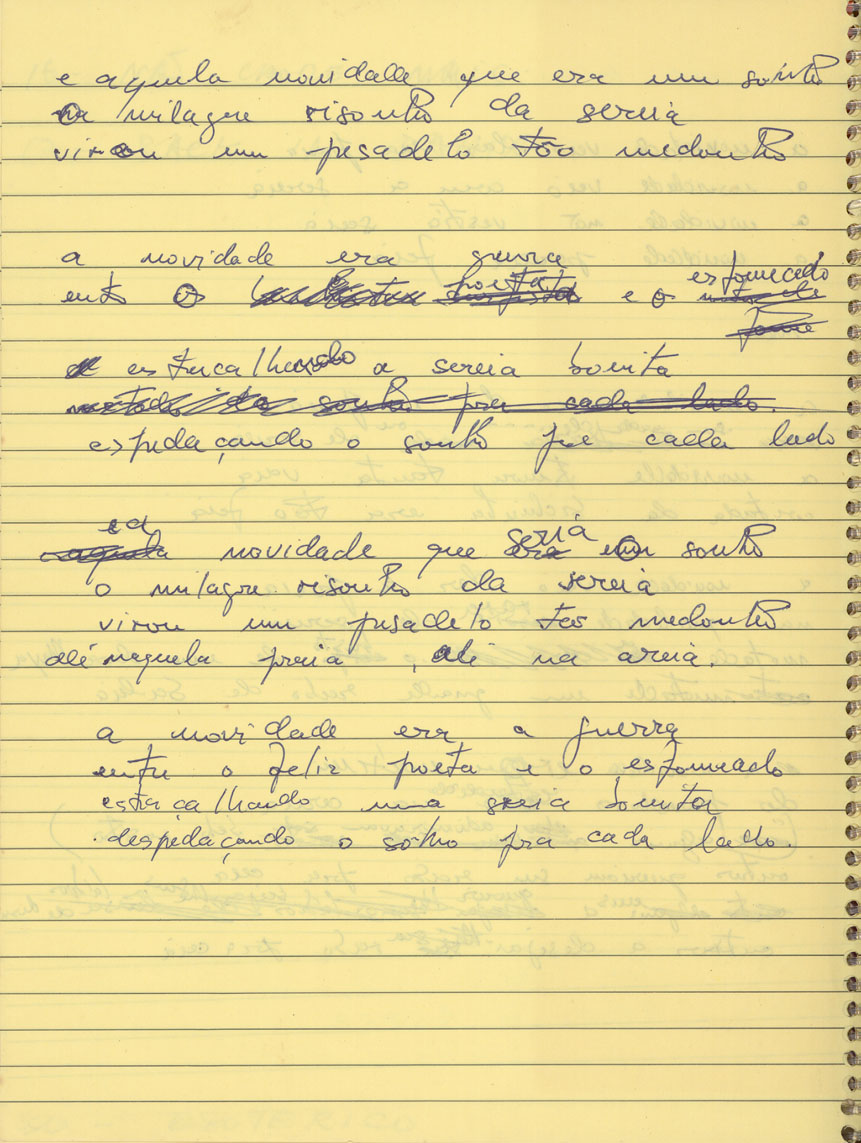 e aquela novidade que era um sonho
o milagre risonho da sereia
virou um pesadelo tão medonho
a novidade era guerra
entre o poeta e o esfomeado
fome
estraçalhando a sereia bonita
sonho pra cada lado.
espedaçando o sonho pra cada lado
e a
novidade que seria o sonho
o milagre risonho da sereia
virou um pesadelo tão medonho
ali naquela praia, ali na areia.
a novidade era a guerra
entre o feliz poeta e o esfomeado
estraçalhando uma sereia bonita
despedaçando o sonho pra cada lado.